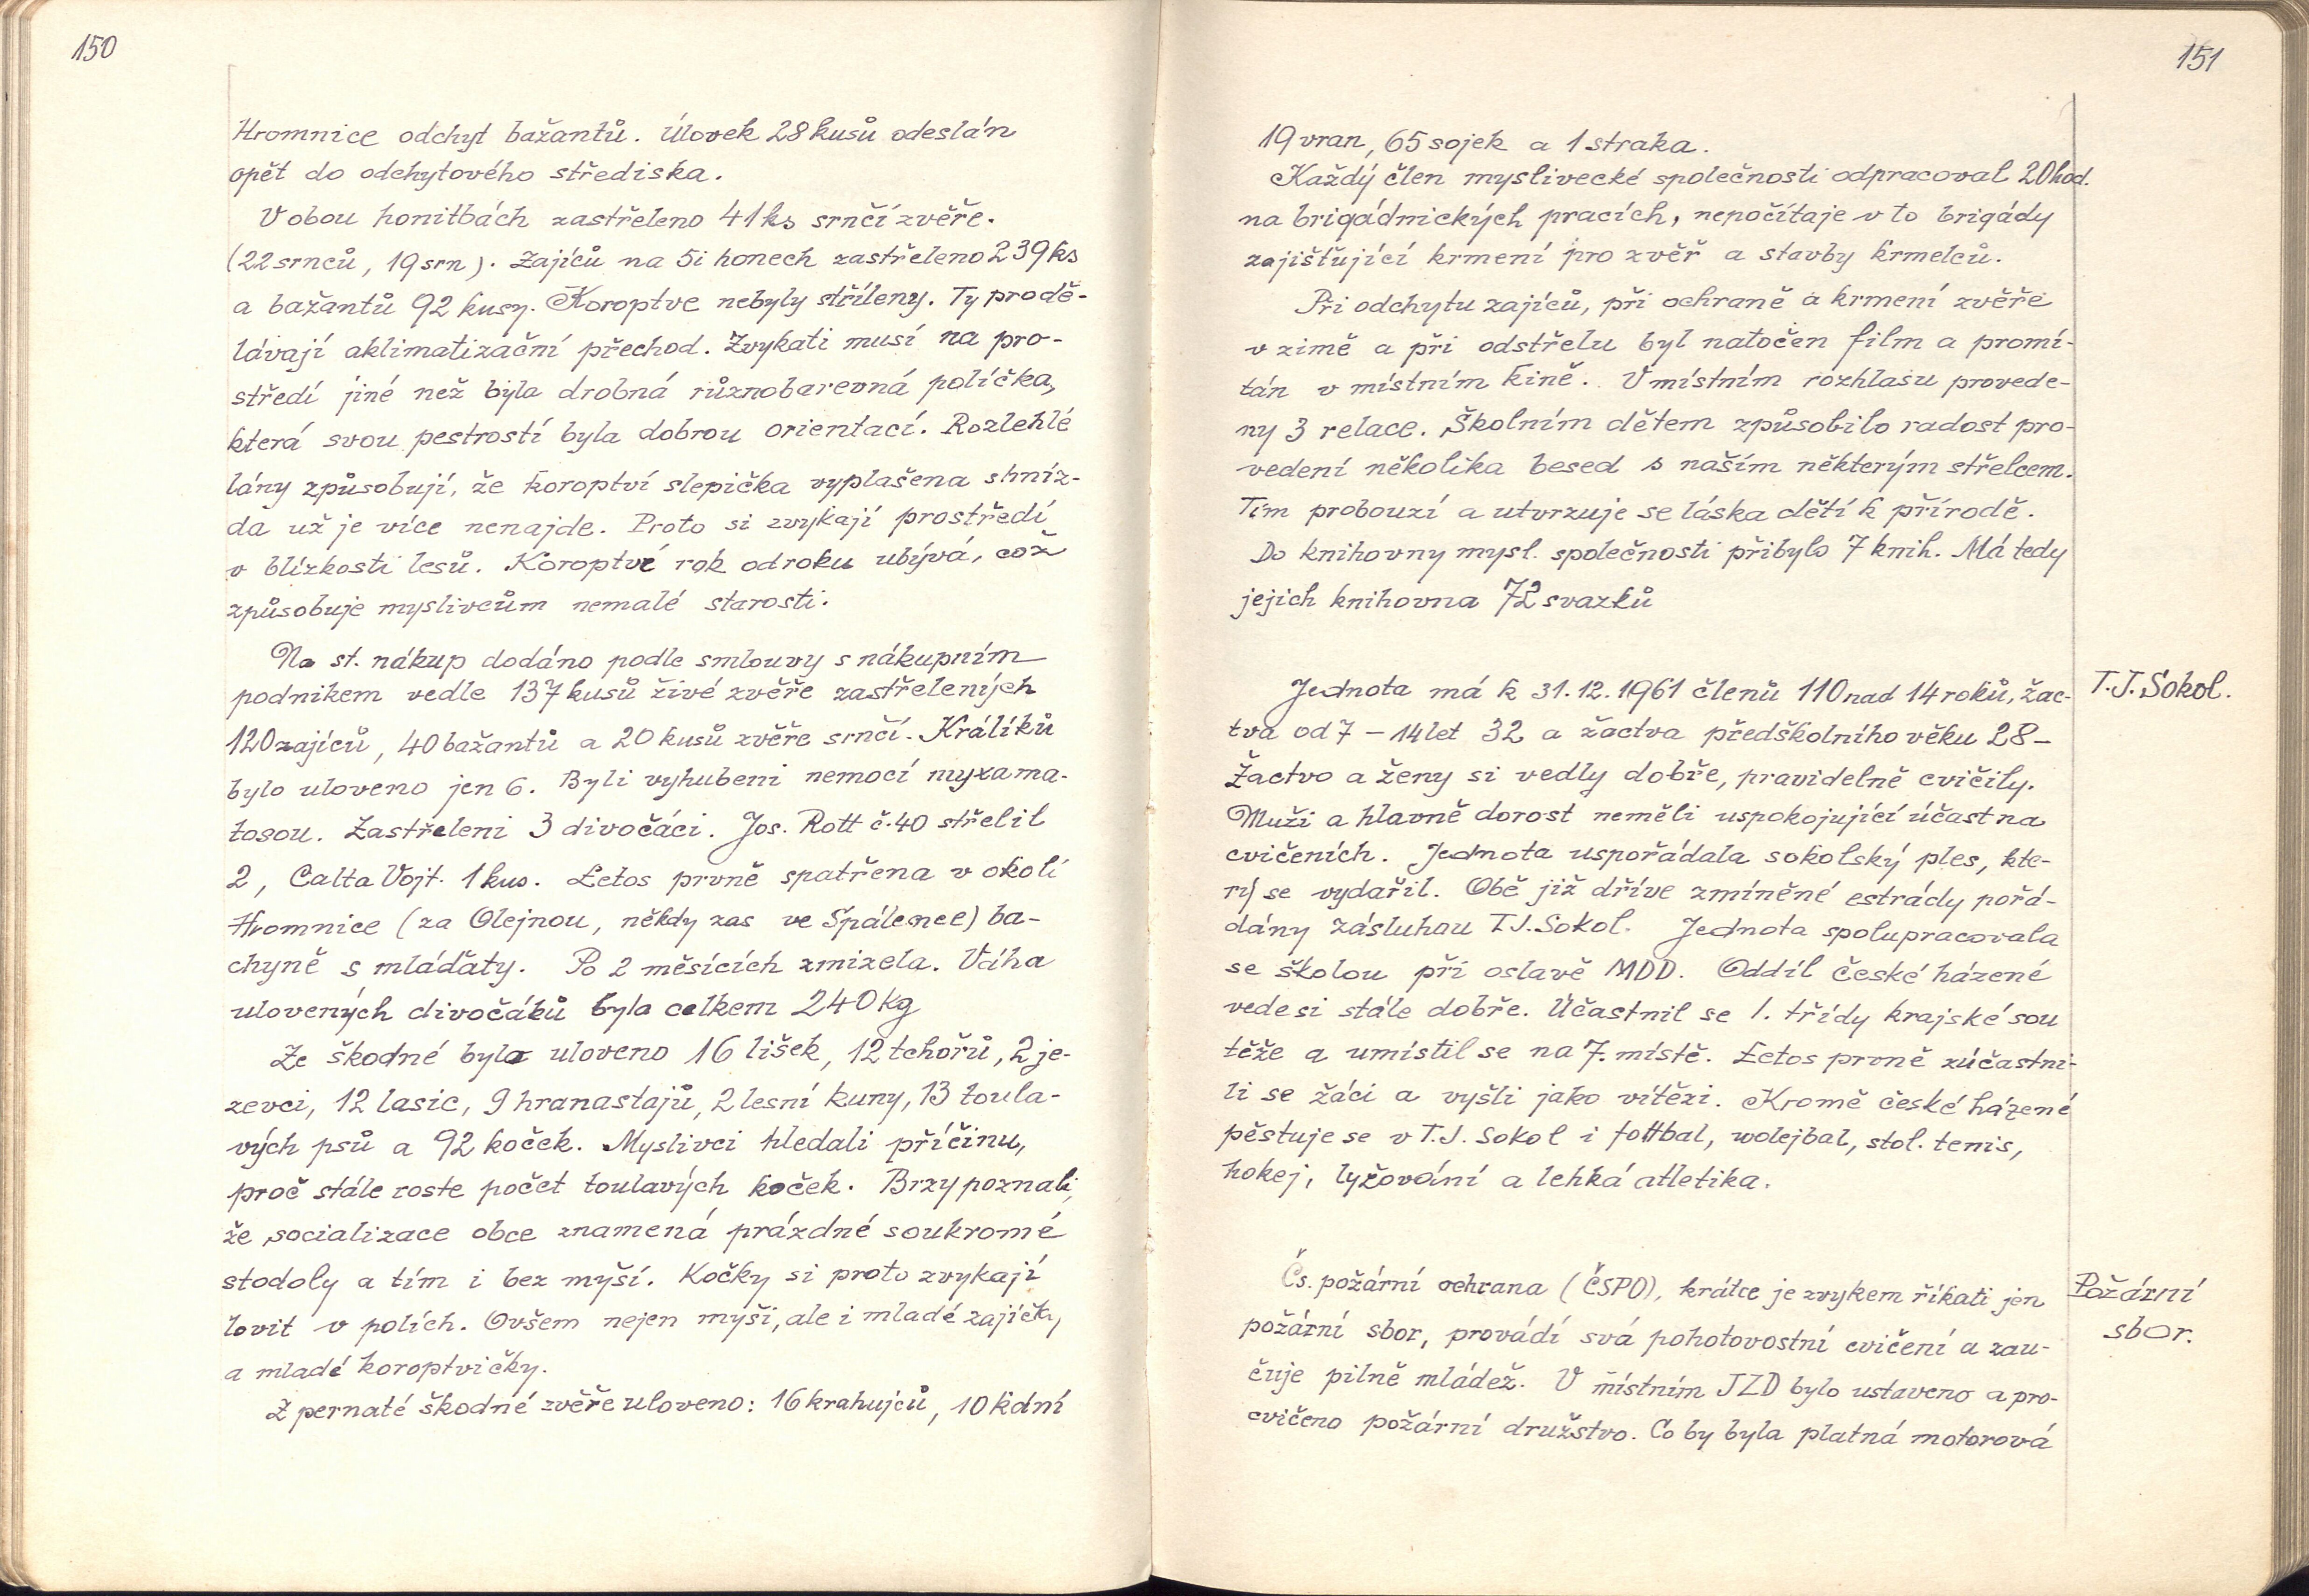 150
Hromnice odchyt bažantů. Úlovek 28 kusů odeslán
opět do odchytového střediska.
V obou honitbách zastřeleno 41 ks srnčí zvěře.
(22 srnců, 19 srn). Zajíců na 5i honech zastřeleno 239 ks
a bažantů 92 kusy. Koroptve nebyly stříleny. Ty prodě-
lávají aklimatizační přechod. Zvykati musí na pro-
středí jiné než byla drobná různobarevná políčka,
která svou pestrostí byla dobrou orientací. Rozlehlé
lány způsobují, že koroptví slepička vyplašena s hníz-
da už je více nenajde. Proto si zvykají prostředí
v blízkosti lesů. Koroptví rok od roku ubývá, což
způsobuje myslivcům nemalé starosti.
Na st. nákup dodáno podle smlouvy s nákupním
podnikem vedle 137 kusů živé zvěře zastřelených
120 zajíců, 40 bažantů a 20 kusů zvěře srnčí. Králíků
bylo uloveno jen 6. Byli vyhubeni nemocí myxama-
tosou. Zastřeleni 3 divočáci. Jos. Rott č. 40 střelil
2, Calta Vojt. 1 kus. Letos prvně spatřena v okolí
Hromnice (za Olejnou, někdy zas ve Spálence) ba-
chyně s mláďaty. Po 2 měsících zmizela. Váha
ulovených divočáků byla celkem 240 kg
Ze škodné bylo uloveno 16 lišek, 12 tchořů, 2 je-
zevci, 12 lasic, 9 hranastajů, 2 lesní kuny, 13 toula-
vých psů a 92 koček. Myslivci hledali příčinu,
proč stále roste počet toulavých koček. Brzy poznali,
že socializace obce znamená prázdné soukromé
stodoly a tím i bez myší. Kočky si proto zvykají
lovit v polích. Ovšem nejen myši, ale i mladé zajíčky
a mladé koroptvičky.
Z pernaté škodné zvěře uloveno: 16 krahujců, 10 kdní
151
19 vran, 65 sojek a 1 straka.
Každý člen myslivecké společnosti odpracoval 20 hod.
na brigádnických pracích, nepočítaje v to brigády
zajišťující krmení pro zvěř a stavby krmelců.
Při odchytu zajíců, při ochraně a krmení zvěře
v zimě a při odstřelu byl natočen film a promí-
tán v místním kině. V místním rozhlasu provede-
ny 3 relace. Školním dětem způsobilo radost pro-
vedení několika besed s naším některým střelcem.
Tím probouzí a utvrzuje se láska dětí k přírodě.
Do knihovny mysl. společnosti přibylo 7 knih. Má tedy
jejich knihovna 72 svazků
T.J. Sokol.
Jednota má k 31.12.1961 členů 110 nad 14 roků, žac-
tva od 7 - 14 let 32 a žactva předškolního věku 28 -
Žactvo a ženy si vedly dobře, pravidelně cvičily.
Muži a hlavně dorost neměli uspokojující účast na
cvičeních. Jednota uspořádala sokolský ples, kte-
rý se vydařil. Obě již dříve zmíněné estrády pořá-
dány zásluhou T.J. Sokol. Jednota spolupracovala
se školou při oslavě MDD. Oddíl české házené
vede si stále dobře. Účastnil se I. třídy krajské sou
těže a umístil se na 7. místě. Letos prvně zúčastni-
li se žáci a vyšli jako vítězi. Kromě české házené
pěstuje se v T.J. Sokol i fottbal, wolejbal, stol. tenis,
hokej, lyžování a lehká atletika.
Požární
sbor.
Čs. požární ochrana (ČSPO), krátce je zvykem říkati jen
požární sbor, provádí svá pohotovostní cvičení a zau-
čuje pilně mládež. V místním JZD bylo ustaveno a pro-
cvičeno požární družstvo. Co by byla platná motorová